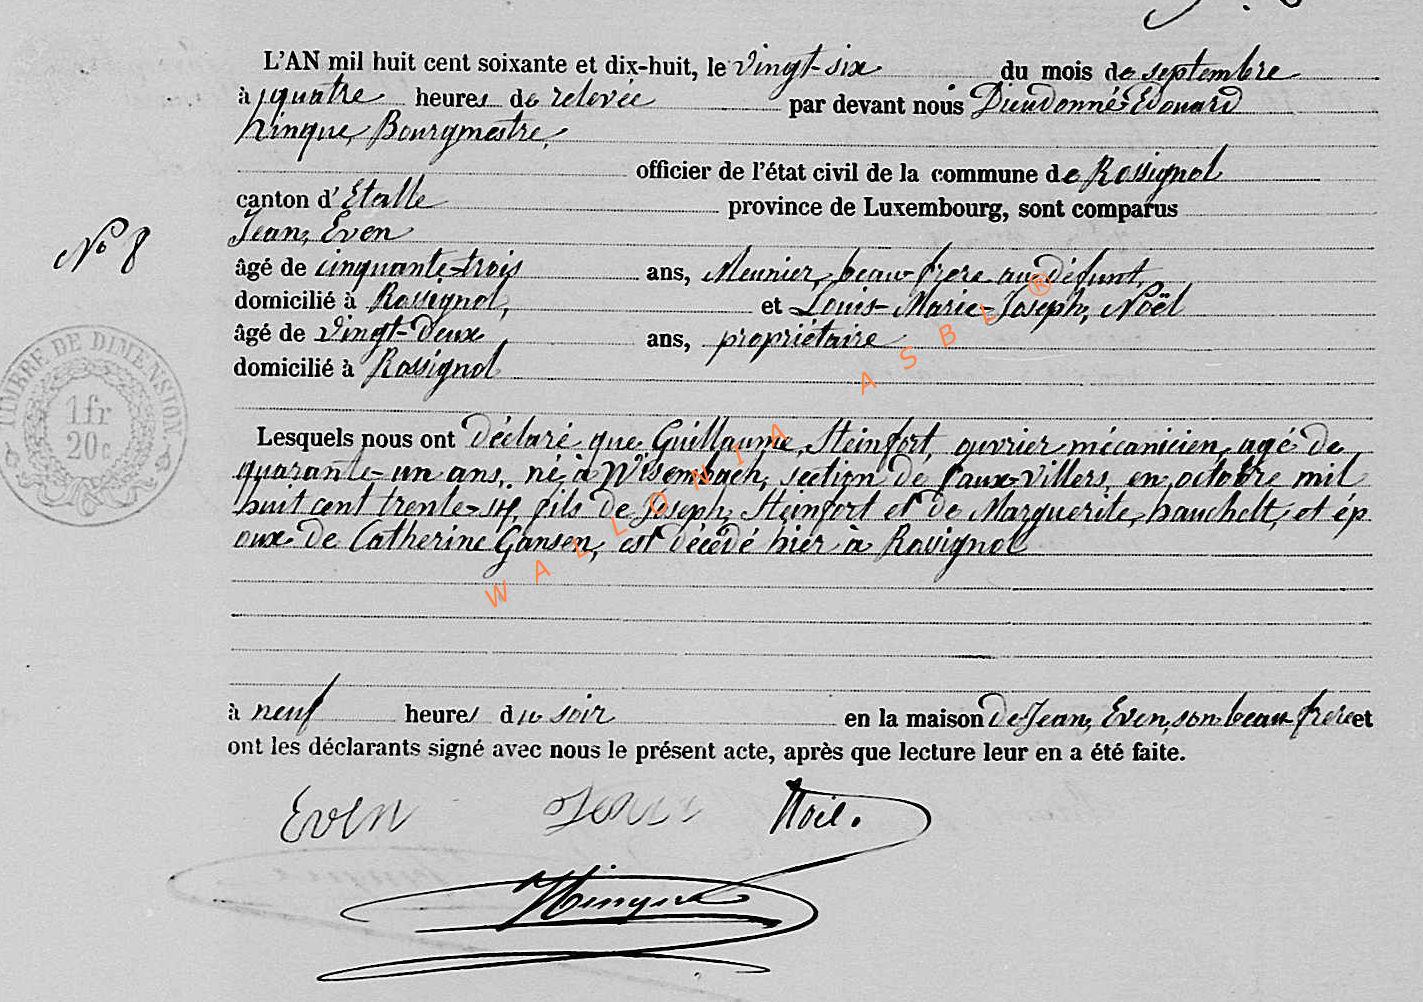 L'AN mil huit cent soixante et dix-huit, le vingt-six du mois de septembre
à quatre heures de relevée par devant nous Dieudonné-Edouard
Hinque, Bourgmestre,
officier de l'état civil de la commune de Rossignol
canton d'Etalle province de Luxembourg, sont comparus
Jean, Even
No 8
âgé de cinquante-trois ans, Meunier, beau-frere au défunt,
domicilié à Rossignol, et Louis-Marie-Joseph, Noël
âgé de vingt-deux ans, propriétaire
domicilié à Rossignol
TIMBRE DE DIMENSION
1 fr
20 c
Lesquels nous ont déclaré que Guillaume, Steinfort, ouvrier mécanicien, agé de
quarante-un ans, né à Wisembach, section de Fauxvillers, en octobre mil
huit cent trente-sept, fils de Joseph, Steinfort et de Marguerite, hauchelt, et ép
oux de Catherine Gansen, est décédé hier à Rossignol
WALLONIA ASBL ®
à neuf heures du soir en la maison de Jean, Even, son beau frere et
ont les déclarants signé avec nous le présent acte, après que lecture leur en a été faite.
Even Jean Noël.
Hinque